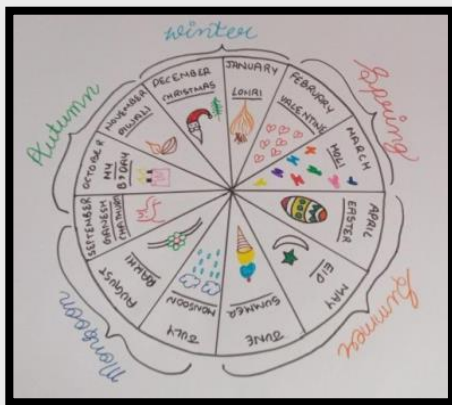 Winter
Spring
Summer
Monsoon
Autumn
JANUARY
LOHRI
FEBRUARY
VALENTINE
MARCH
HOLI
APRIL
EASTER
MAY
EID
JUNE
SUMMER
JULY
MONSOON
AUGUST
RAKHI
SEPTEMBER
GANESH
CHATURTHI
OCTOBER
MY
B'DAY
NOVEMBER
DIWALI
DECEMBER
CHRISTMAS